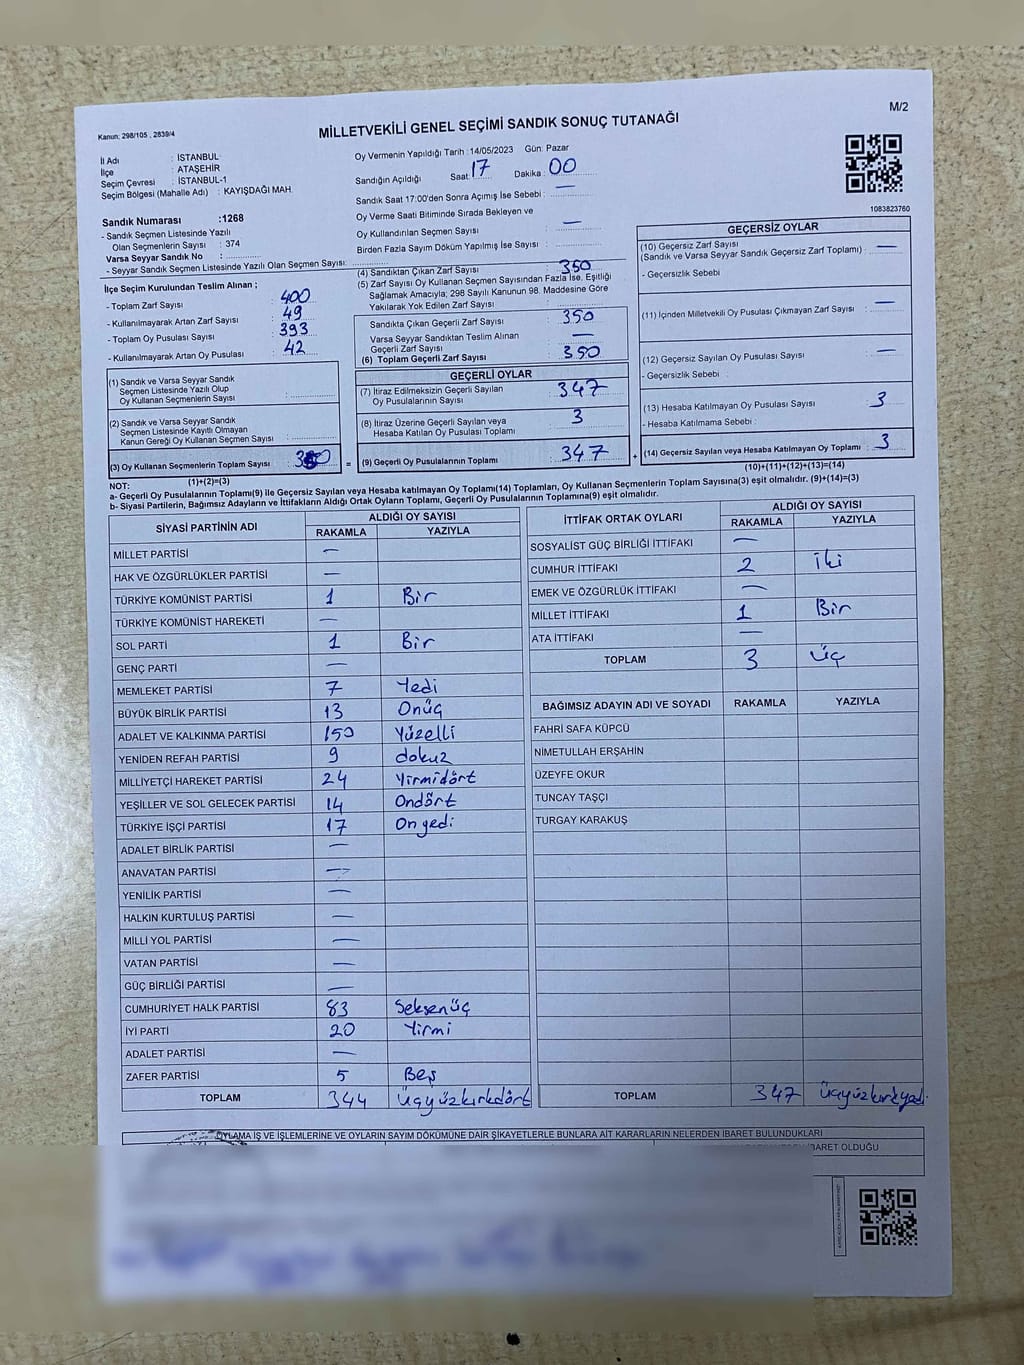 M/2
Kanun: 298/105 , 2839/4
MİLLETVEKİLİ GENEL SEÇİMİ SANDIK SONUÇ TUTANAĞI
İl Adı : İSTANBUL
İlçe : ATAŞEHİR
Seçim Çevresi : İSTANBUL-1
Seçim Bölgesi (Mahalle Adı) : KAYIŞDAĞI MAH.
Oy Vermenin Yapıldığı Tarih :14/05/2023 Gün: Pazar
Sandığın Açıldığı Saat: 17 Dakika : 00
Sandık Saat 17:00'den Sonra Açımış İse Sebebi : —
Oy Verme Saati Bitiminde Sırada Bekleyen ve
Oy Kullandırılan Seçmen Sayısı : —
Birden Fazla Sayım Döküm Yapılmış İse Sayısı :
1083823760
Sandık Numarası :1268
- Sandık Seçmen Listesinde Yazılı
Olan Seçmenlerin Sayısı : 374
Varsa Seyyar Sandık No :
- Seyyar Sandık Seçmen Listesinde Yazılı Olan Seçmen Sayısı:
İlçe Seçim Kurulundan Teslim Alınan ;
- Toplam Zarf Sayısı : 400
- Kullanılmayarak Artan Zarf Sayısı : 49
- Toplam Oy Pusulası Sayısı : 393
- Kullanılmayarak Artan Oy Pusulası : 42
(1) Sandık ve Varsa Seyyar Sandık
Seçmen Listesinde Yazılı Olup
Oy Kullanan Seçmenlerin Sayısı :
(2) Sandık ve Varsa Seyyar Sandık
Seçmen Listesinde Kayıtlı Olmayan
Kanun Gereği Oy Kullanan Seçmen Sayısı :
(3) Oy Kullanan Seçmenlerin Toplam Sayısı : 350 =
(1)+(2)=(3)
(4) Sandıktan Çıkan Zarf Sayısı : 350
(5) Zarf Sayısı Oy Kullanan Seçmen Sayısından Fazla İse, Eşitliği
Sağlamak Amacıyla; 298 Sayılı Kanunun 98. Maddesine Göre
Yakılarak Yok Edilen Zarf Sayısı :
Sandıkta Çıkan Geçerli Zarf Sayısı : 350
Varsa Seyyar Sandıktan Teslim Alınan
Geçerli Zarf Sayısı : —
(6) Toplam Geçerli Zarf Sayısı : 350
GEÇERLİ OYLAR
(7) İtiraz Edilmeksizin Geçerli Sayılan
Oy Pusulalarının Sayısı : 347
(8) İtiraz Üzerine Geçerli Sayılan veya
Hesaba Katılan Oy Pusulaları Toplamı : 3
(9) Geçerli Oy Pusulalarının Toplamı : 347 +
GEÇERSİZ OYLAR
(10) Geçersiz Zarf Sayısı
(Sandık ve Varsa Seyyar Sandık Geçersiz Zarf Toplamı) : —
- Geçersizlik Sebebi
(11) İçinden Milletvekili Oy Pusulası Çıkmayan Zarf Sayısı : —
(12) Geçersiz Sayılan Oy Pusulası Sayısı : —
- Geçersizlik Sebebi :
(13) Hesaba Katılmayan Oy Pusulası Sayısı : 3
- Hesaba Katılmama Sebebi :
(14) Geçersiz Sayılan veya Hesaba Katılmayan Oy Toplamı : 3
(10)+(11)+(12)+(13)=(14)
NOT:
a- Geçerli Oy Pusulalarının Toplamı(9) ile Geçersiz Sayılan veya Hesaba katılmayan Oy Toplamı(14) Toplamları, Oy Kullanan Seçmenlerin Toplam Sayısına(3) eşit olmalıdır. (9)+(14)=(3)
b- Siyasi Partilerin, Bağımsız Adayların ve İttifakların Aldığı Ortak Oyların Toplamı, Geçerli Oy Pusulalarının Toplamına(9) eşit olmalıdır.
SİYASİ PARTİNİN ADI ALDIĞI OY SAYISI
RAKAMLA YAZIYLA
MİLLET PARTİSİ —
HAK VE ÖZGÜRLÜKLER PARTİSİ —
TÜRKİYE KOMÜNİST PARTİSİ 1 Bir
TÜRKİYE KOMÜNİST HAREKETİ —
SOL PARTİ 1 Bir
GENÇ PARTİ —
MEMLEKET PARTİSİ 7 Yedi
BÜYÜK BİRLİK PARTİSİ 13 Onüç
ADALET VE KALKINMA PARTİSİ 150 Yüzelli
YENİDEN REFAH PARTİSİ 9 dokuz
MİLLİYETÇİ HAREKET PARTİSİ 24 Yirmidört
YEŞİLLER VE SOL GELECEK PARTİSİ 14 Ondört
TÜRKİYE İŞÇİ PARTİSİ 17 Onyedi
ADALET BİRLİK PARTİSİ —
ANAVATAN PARTİSİ —
YENİLİK PARTİSİ —
HALKIN KURTULUŞ PARTİSİ —
MİLLİ YOL PARTİSİ —
VATAN PARTİSİ —
GÜÇ BİRLİĞİ PARTİSİ —
CUMHURİYET HALK PARTİSİ 83 Seksenüç
İYİ PARTİ 20 Yirmi
ADALET PARTİSİ —
ZAFER PARTİSİ 5 Beş
TOPLAM 344 Üçyüzkırkdört
İTTİFAK ORTAK OYLARI ALDIĞI OY SAYISI
RAKAMLA YAZIYLA
SOSYALİST GÜÇ BİRLİĞİ İTTİFAKI —
CUMHUR İTTİFAKI 2 İki
EMEK VE ÖZGÜRLÜK İTTİFAKI —
MİLLET İTTİFAKI 1 Bir
ATA İTTİFAKI —
TOPLAM 3 Üç
BAĞIMSIZ ADAYIN ADI VE SOYADI RAKAMLA YAZIYLA
FAHRİ SAFA KÜPCÜ
NİMETULLAH ERŞAHİN
ÜZEYFE OKUR
TUNCAY TAŞÇI
TURGAY KARAKUŞ
TOPLAM 347 Üçyüzkırkyedi
OYLAMA İŞ VE İŞLEMLERİNE VE OYLARIN SAYIM DÖKÜMÜNE DAİR ŞİKAYETLERLE BUNLARA AİT KARARLARIN NELERDEN İBARET BULUNDUKLARI
İBARET OLDUĞU